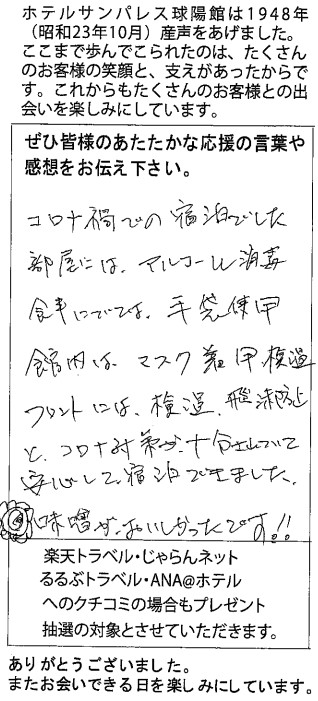 ホテルサンパレス球陽館は1948年
（昭和23年10月）産声をあげました。
ここまで歩んでこられたのは、たくさん
のお客様の笑顔と、支えがあったからで
す。これからもたくさんのお客様との出
会いを楽しみにしています。
ぜひ皆様のあたたかな応援の言葉や
感想をお伝え下さい。
コロナ禍での宿泊でした
部屋には、アルコール消毒
食事にでは、手袋使用
館内は、マスク着用、検温
フロントには、検温、飛沫防止
と、コロナ対策が、十分出ていて
安心して宿泊できました。
味噌が、おいしかったです!!
楽天トラベル・じゃらんネット
るるぶトラベル・ANA@ホテル
へのクチコミの場合もプレゼント
抽選の対象とさせていただきます。
ありがとうございました。
またお会いできる日を楽しみにしています。